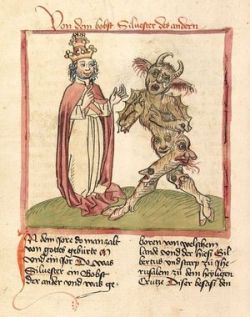 Von dem bobst Siluester des andern
In dem Jore do man zalt
von gottes geburte M
vnd ein Jor Do was
Siluester ein Bobst
der ander vnd was ge
boren von welschem
lande vnd der hieß Gil
bertus vnd starp zu Jhe
rusalem zu dem heyligen
Crutze Diser besaß den